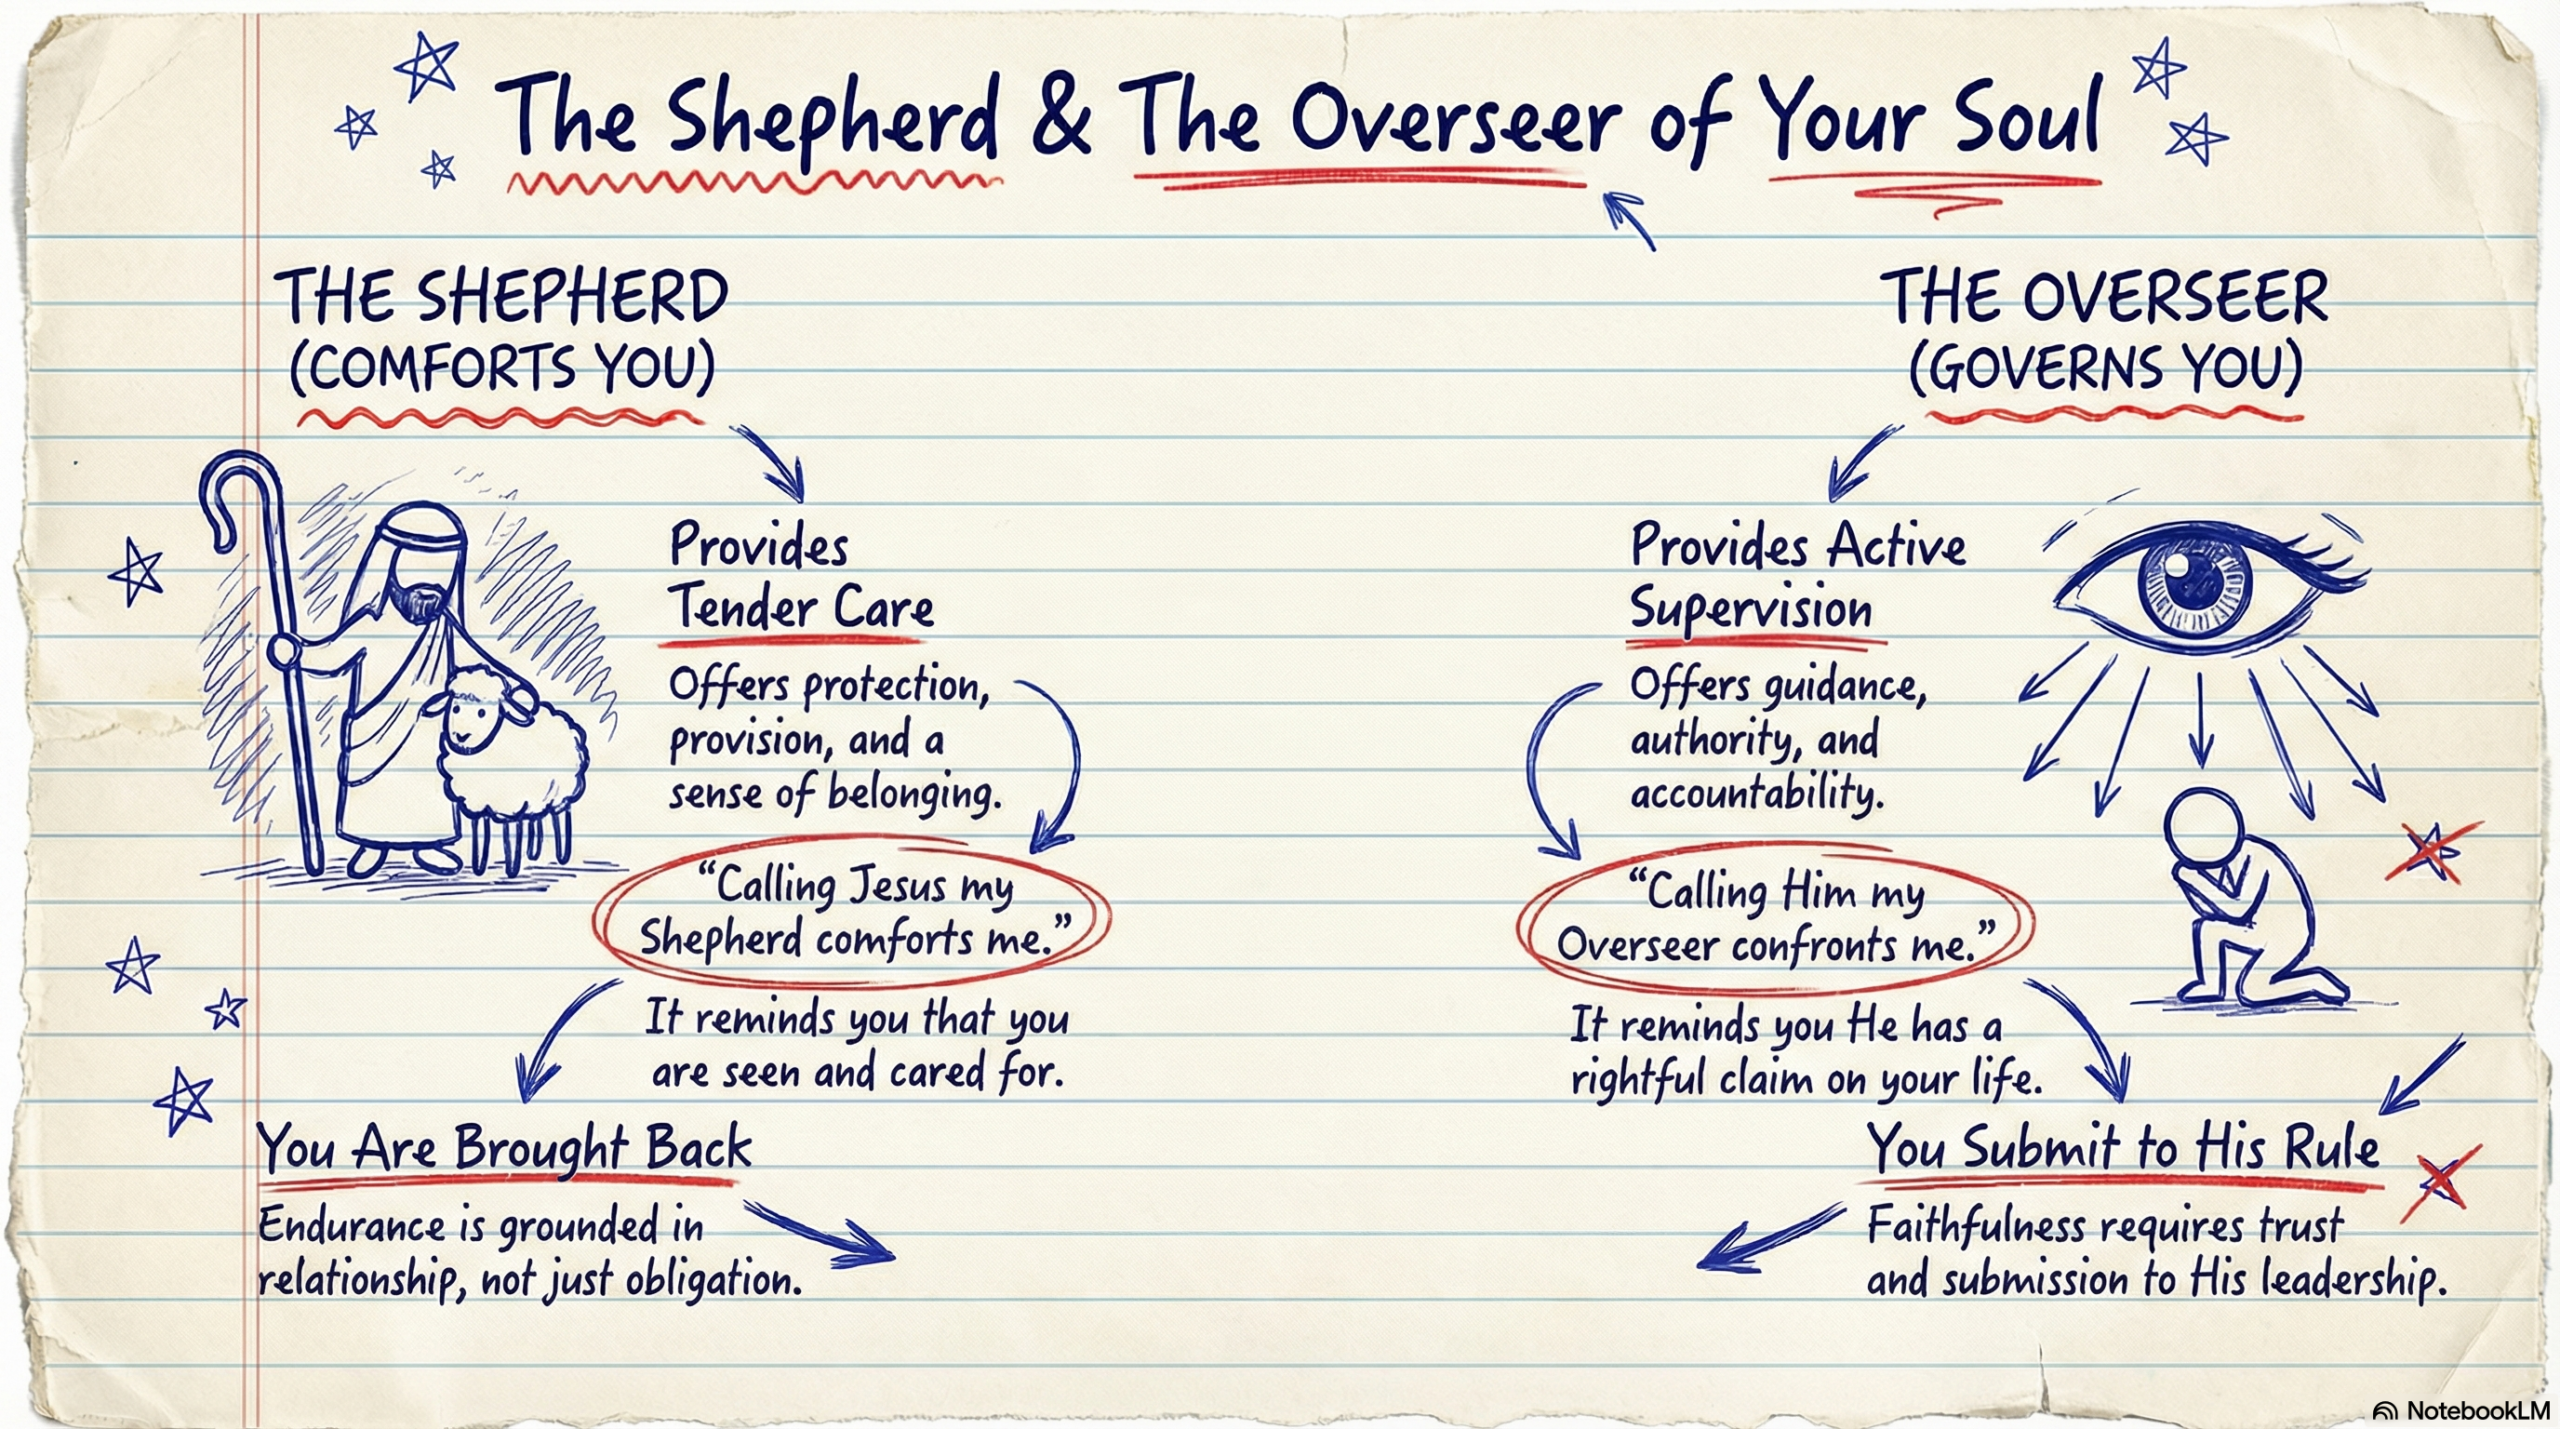 The Shepherd & The Overseer of Your Soul
THE SHEPHERD
(COMFORTS YOU)
Provides
Tender Care
Offers protection,
provision, and a
sense of belonging.
“Calling Jesus my
Shepherd comforts me.”
It reminds you that you
are seen and cared for.
You Are Brought Back
Endurance is grounded in
relationship, not just obligation.
THE OVERSEER
(GOVERNS YOU)
Provides Active
Supervision
Offers guidance,
authority, and
accountability.
“Calling Him my
Overseer confronts me.”
It reminds you He has a
rightful claim on your life.
You Submit to His Rule
Faithfulness requires trust
and submission to His leadership.
NotebookLM